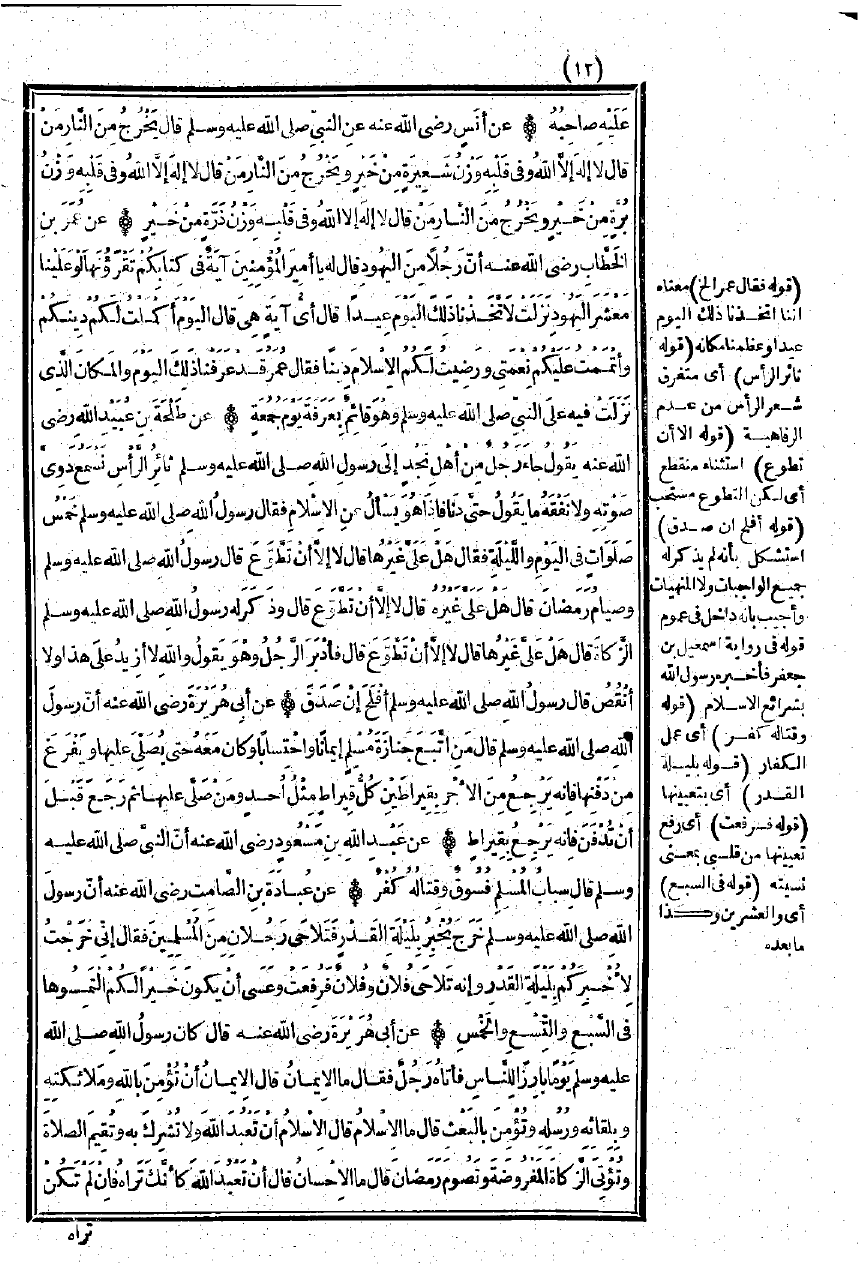 (١٢)
عَلَيْهِ صَاحِبُهُ ۞ عن أنَسٍ رضى الله عنه عن النبيّ صلى الله عليه وسلم قال يَخْرُجُ مِنَ النَّارِ مَنْ
قال لا إله إلاَّ اللهُ وفى قَلْبِهِ وَزْنُ شَعِيرَةٍ مِنْ خَيْرٍ ويَخْرُجُ مِنَ النَّارِ مَنْ قال لا إله إلاَّ اللهُ وفى قَلْبِهِ وَزْنُ
بُرَّةٍ مِنْ خَيْرٍ ويَخْرُجُ مِنَ النَّارِ مَنْ قال لا إله إلا اللهُ وفى قَلْبِهِ وَزْنُ ذَرَّةٍ مِنْ خَيْرٍ ۞ عن عُمَرَ بن
الخَطَّابِ رضى الله عنه أنّ رَجُلًا مِنَ اليهود قال له يا أميرَ المُؤْمِنِينَ آيَةٌ فى كِتَابِكُمْ تَقْرَؤُنَهَا لَوْ عَلَيْنَا
مَعْشَرَ اليَهُودِ نَزَلَتْ لاَ تَّخَذْنَا ذَلِكَ اليَوْمَ عِيدًا قال أىُّ آيَةٍ هِىَ قال اليَوْمَ أَكْمَلْتُ لَكُمْ دِينَكُمْ
وأتْمَمْتُ عَلَيْكُمْ نِعْمَتِى ورَضِيتُ لَكُمُ الإسْلامَ دِينًا فقال عمرُ قَدْ عَرَفْنَا ذَلِكَ اليَوْمَ والمَكَانَ الَّذِى
نَزَلَتْ فيه علَى النبيّ صلى الله عليه وسلم وهُوَ قائمٌ بِعَرَفَةَ يَوْمَ جُمُعَةٍ ۞ عن طَلْحَةَ بنِ عُبَيْدِ الله رضى
الله عنه يَقُولُ جاءَ رَجُلٌ مِنْ أهلِ نَجْدٍ إلَى رسول الله صلى الله عليه وسلم ثَائِرُ الرَّأسِ نَسْمَعُ دَوِىَّ
صَوْتِهِ ولا نَفْقَهُ ما يَقُولُ حتَّى دَنَا فإذَا هُوَ يَسْأَلُ عنِ الإسْلامِ فقال رسولُ الله صلى الله عليه وسلم خَمْسُ
صَلَوَاتٍ فى اليَوْمِ واللَّيْلَةِ فقال هَلْ عَلَىَّ غَيْرُهَا قال لا إلاَّ أنْ تَطَّوَّعَ قال رسولُ الله صلى الله عليه وسلم
وصِيامُ رَمَضَانَ قال هَلْ عَلَىَّ غَيْرُهُ قال لا إلاَّ أنْ تَطَّوَّعَ قال وذَكَرَ له رسولُ الله صلى الله عليه وسلم
الزَّكاةَ قال هَلْ عَلَىَّ غَيْرُهَا قال لا إلاَّ أنْ تَطَّوَّعَ قال فأدْبَرَ الرَّجُلُ وهْوَ يَقُولُ والله لا أزِيدُ علَى هذا ولا
أنْقُصُ قال رسولُ الله صلى الله عليه وسلم أفْلَحَ إنْ صَدَقَ ۞ عن أبى هُرَيْرَةَ رضى الله عنه أنّ رسولَ
الله صلى الله عليه وسلم قال مَنِ اتَّبَعَ جَنَازَةَ مُسْلِمٍ إيمانًا واحْتِسَابًا وكان مَعَهُ حتى يُصَلَّى عليها ويَفْرَغَ
مِنْ دَفْنِهَا فإنه يَرْجِعُ مِنَ الأجْرِ بِقِيرَاطَيْنِ كُلُّ قِيرَاطٍ مِثْلُ أُحُدٍ ومَنْ صَلَّى عليها ثم رَجَعَ قَبْلَ
أنْ تُدْفَنَ فإنه يَرْجِعُ بِقِيرَاطٍ ۞ عن عَبْدِ اللهِ بنِ مَسْعُودٍ رضى الله عنه أنّ النبيَّ صلى الله عليه
وسلم قال سِبابُ المُسْلِمِ فُسُوقٌ وقِتَالُهُ كُفْرٌ ۞ عن عُبَادَةَ بنِ الصَّامِتِ رضى الله عنه أنّ رسولَ
الله صلى الله عليه وسلم خَرَجَ يُخْبِرُ بِلَيْلَةِ القَدْرِ فَتَلاَحَى رَجُلانِ مِنَ المُسْلِمِينَ فقال إنِّى خَرَجْتُ
لِأُخْبِرَكُمْ بِلَيْلَةِ القَدْرِ وإنه تَلاحَى فُلاَنٌ وفُلاَنٌ فَرُفِعَتْ وعَسَى أنْ يكونَ خَيْرًا لَكُمْ الْتَمِسُوهَا
فى السَّبْعِ والتِّسْعِ والخَمْسِ ۞ عن أبى هُرَيْرَةَ رضى الله عنه قال كان رسولُ الله صلى الله
عليه وسلم يَوْمًا بَارِزًا لِلنَّاسِ فأتَاهُ رَجُلٌ فقال ما الإيمانُ قال الإيمانُ أنْ تُؤْمِنَ بالله ومَلائكتِهِ
وبِلِقائِهِ ورُسُلِهِ وتُؤْمِنَ بالبَعْثِ قال ما الإسْلامُ قال الإسْلامُ أنْ تَعْبُدَ اللهَ ولا تُشْرِكَ به وتُقِيمَ الصَّلاةَ
وتُؤَتِّىَ الزَّكَاةَ المَفْرُوضَةَ وتَصُومَ رَمَضَانَ قال ما الإحْسانُ قال أنْ تَعْبُدَ اللهَ كأنَّكَ تَرَاهُ فإنْ لَمْ تَكُنْ
تراه
(قوله فقال عمر الخ) معناه
اننا اتخذنا ذلك اليوم
عيدا وعظمنا مكانه (قوله
ثائر الرأس) أى متفرق
شعر الرأس من عدم
الرفاهية (قوله الا أن
تطوع) استثناء منقطع
أى لكن التطوع مستحب
(قوله أفلح ان صدق)
استشكل بأنه لم يذكر له
جميع الواجبات ولا المنهيات
وأجيب بانه داخل فى عموم
قوله فى رواية اسمعيل بن
جعفر فأخبره رسول الله
بشرائع الاسلام (قوله
وقتاله كفر) أى عمل
الكفار (قوله بليلة
القدر) أى بتعيينها
(قوله فرفعت) أى رفع
تعيينها من قلبى بمعنى
نسيته (قوله فى السبع)
أى والعشرين وكذا
ما بعده